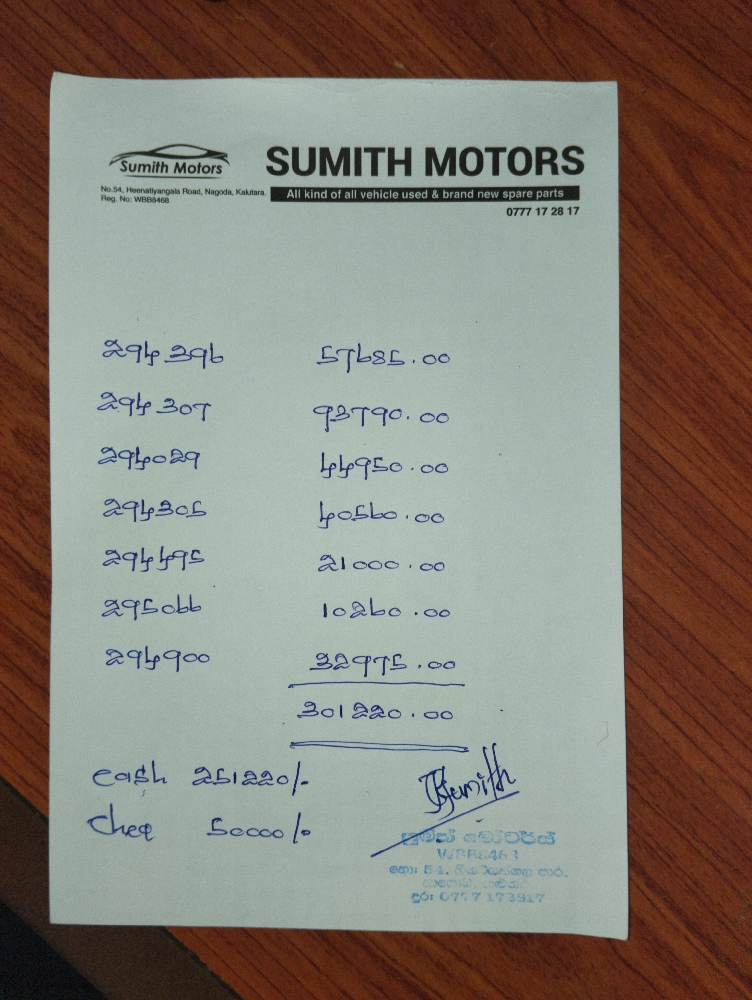 Sumith Motors
SUMITH MOTORS
No.54, Heenatiyangala Road, Nagoda, Kalutara.
Reg. No: WBB8468
All kind of all vehicle used & brand new spare parts
0777 17 28 17
294396 57685.00
294307 93790.00
294029 44950.00
294305 40560.00
294495 21000.00
295066 10260.00
294900 32975.00
301220.00
cash 251220/-
Cheq 50000/-
Sumith